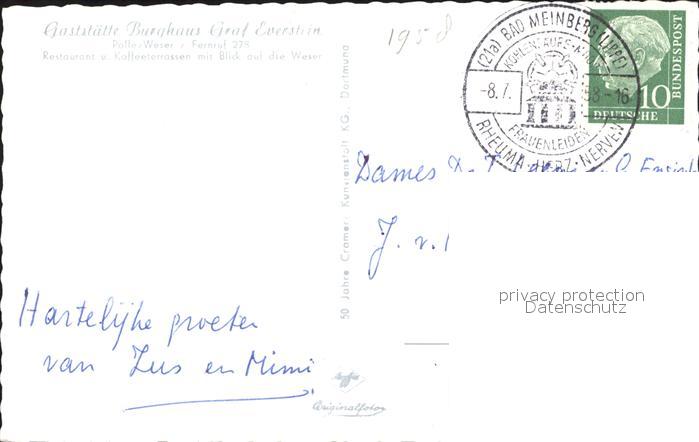 Gaststätte Burghaus Graf Everstein
Polle-Weser / Fernruf 278
Restaurant u. Kaffeeterrassen mit Blick auf die Weser
1958
(21a) BAD MEINBERG (LIPPE)
-8.7.
58-16
FRAUENLEIDEN
RHEUMA · HERZ · NERVEN
10
DEUTSCHE
BUNDESPOST
50 Jahre Cramers Kunstanstalt KG., Dortmund
Dames
J. v.
Hartelijke groeten
van Zus en Mimi
privacy protection
Datenschutz
Agfa
Originalfoto